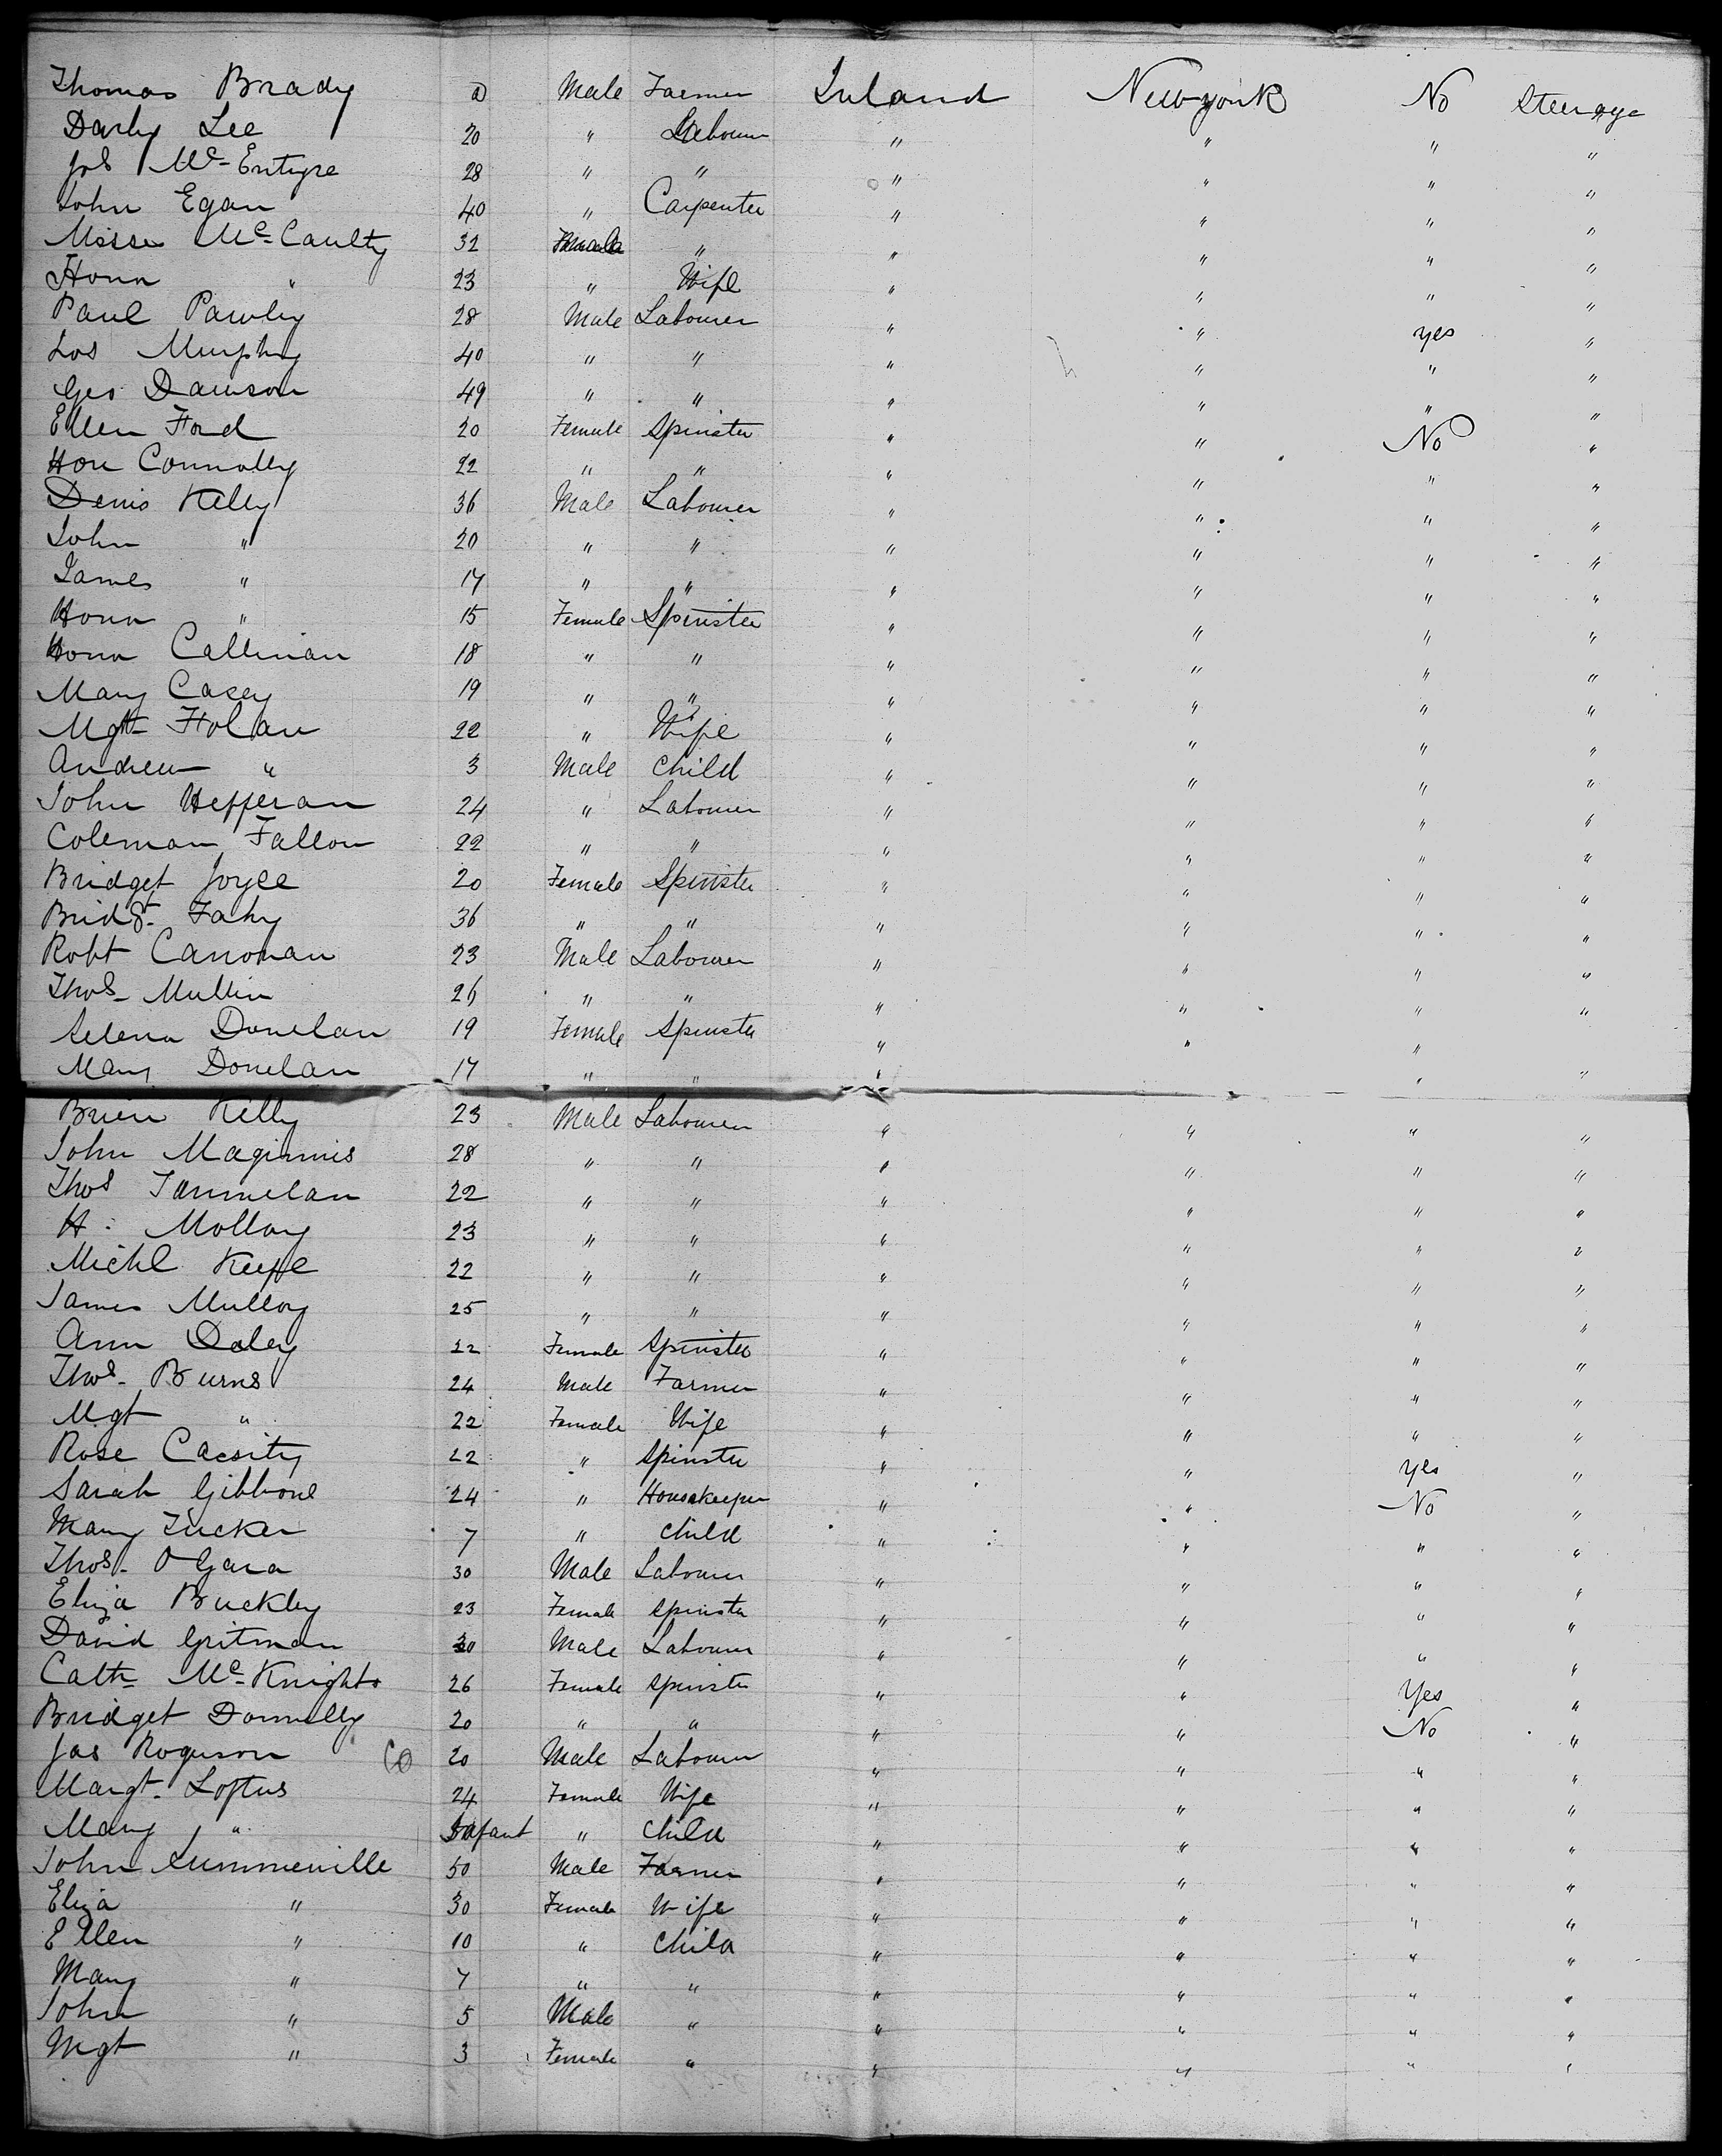 Thomas Brady Male Farmer Ireland New york No Steerage
Darby Lee 20 " Labourer " " " "
Jas Mc Entyre 28 " " " " " "
John Egan 40 " Carpenter " " " "
Mc Caulty 32 " " " " "
Hona " 23 " Wife " " " "
Paul Pawley 28 Male Labourer " " yes "
Jos Murphy 40 " " " " " "
Geo Dawson 49 " " " " " "
Ellen Ford 20 Female Spinster " " No "
Hon Connolly 22 " " " " " "
Denis Kelly 36 Male Labourer " " " "
John " 20 " " " " " "
James " 17 " " " " " "
Hona " 15 Female Spinster " " " "
Hona Callinan 18 " " " " " "
Mary Casey 19 " " " " " "
Mgt Holan 22 " Wife " " " "
Andrew " 3 Male Child " " " "
John Hefferan 24 " Labourer " " " "
Coleman Fallon 22 " " " " " "
Bridget Joyce 20 Female Spinster " " " "
Bridgt Fahy 36 " " " " " "
Robt Canovan 23 Male Labourer " " " "
Thos Mullin 26 " " " " " "
Selena Donelan 19 Female Spinster " " "
Mary Donelan 17 " " " " "
Brien Kelly 23 Male Labourer " " " "
John Maginnis 28 " " " " " "
Thos 22 " " " " " "
H Molloy 23 " " " " " "
Michl Keefe 22 " " " " " "
James Mulloy 25 " " " " " "
Ann Daley 22 Female Spinster " " " "
Thos Burns 24 Male Farmer " " " "
Mgt " 22 Female Wife " " " "
Rose Cassity 22 " Spinster " " yes "
Sarah Gibbons 24 " Housekeeper " " No "
Mary Tucker 7 " Child " " " "
Thos O Gara 30 Male Labourer " " " "
Eliza Buckley 23 Female Spinster " " " "
David Gritman 30 Male Labourer " " " "
Cath Mc Knight 26 Female Spinster " " Yes "
Bridget Donnelly 20 " " " " No "
Jas Roguson 20 Male Labourer " " " "
Margt Loftus 24 Female Wife " " " "
Mary " Infant " Child " " " "
John Summerville 50 Male Farmer " " " "
Eliza " 30 Female Wife " " " "
Ellen " 10 " Child " " " "
Mary " 7 " " " " " "
John " 5 Male " " " " "
Mgt " 3 Female " " " " "